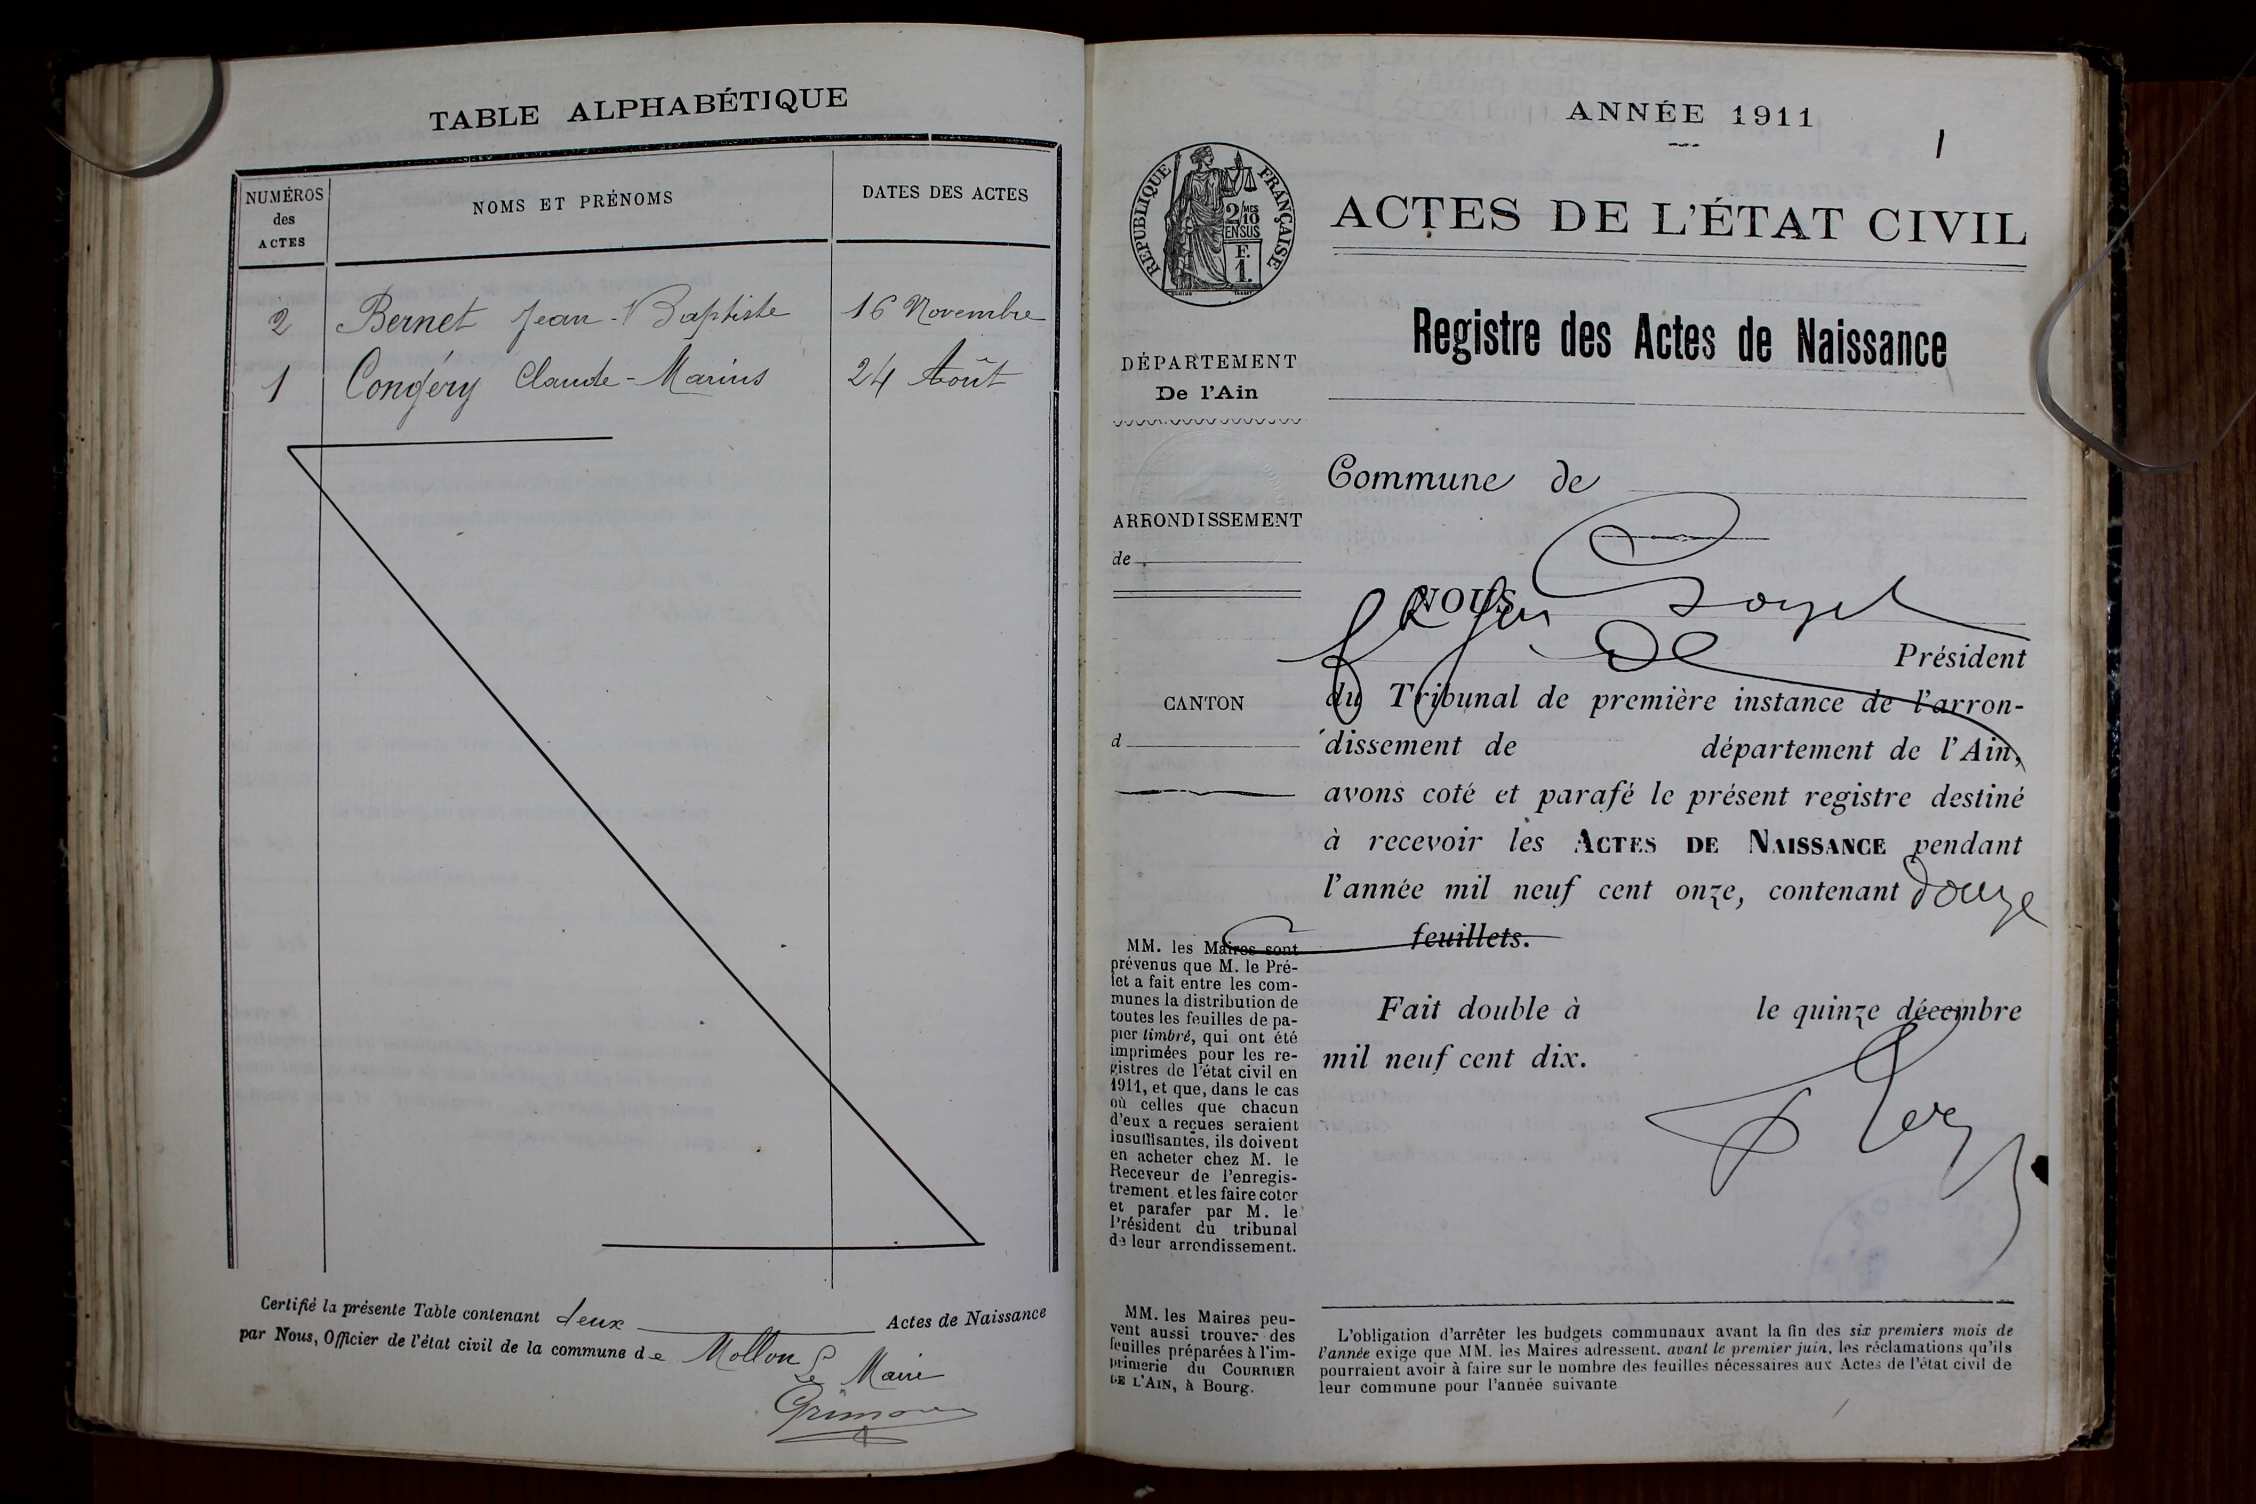 TABLE ALPHABÉTIQUE
NUMÉROS
des
ACTES
NOMS ET PRÉNOMS
DATES DES ACTES
2 Bernet Jean-Baptiste 16 Novembre
1 Congéry Claude-Marius 24 Août
Certifié la présente Table contenant deux Actes de Naissance
par Nous, Officier de l'état civil de la commune de Mollon
Le Maire
ANNÉE 1911
1
RÉPUBLIQUE FRANÇAISE
2/10 MES
EN SUS
F.
1.
ACTES DE L'ÉTAT CIVIL
Registre des Actes de Naissance
DÉPARTEMENT
De l'Ain
ARRONDISSEMENT
de
CANTON
d
MM. les Maires sont
prévenus que M. le Pré-
fet a fait entre les com-
munes la distribution de
toutes les feuilles de pa-
pier timbré, qui ont été
imprimées pour les re-
gistres de l'état civil en
1911, et que, dans le cas
où celles que chacun
d'eux a reçues seraient
insuffisantes, ils doivent
en acheter chez M. le
Receveur de l'enregis-
trement et les faire coter
et parafer par M. le
Président du tribunal
de leur arrondissement.
MM. les Maires peu-
vent aussi trouver des
feuilles préparées à l'im-
primerie du COURRIER
DE L'AIN, à Bourg.
Commune de
NOUS
Président
du Tribunal de première instance de l'arron-
dissement de département de l'Ain,
avons coté et parafé le présent registre destiné
à recevoir les ACTES DE NAISSANCE pendant
l'année mil neuf cent onze, contenant douze
feuillets.
Fait double à le quinze décembre
mil neuf cent dix.
L'obligation d'arrêter les budgets communaux avant la fin des six premiers mois de
l'année exige que MM. les Maires adressent, avant le premier juin, les réclamations qu'ils
pourraient avoir à faire sur le nombre des feuilles nécessaires aux Actes de l'état civil de
leur commune pour l'année suivante